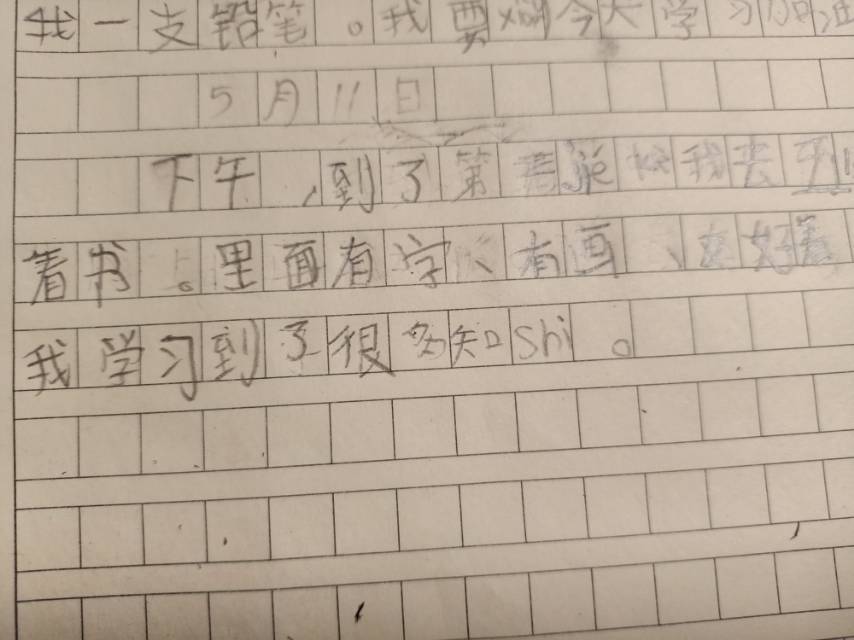 我一支铅笔。我要xiang今天学习加油
5月11日
下午,到了第 我去
着书。里面有字、有画、 好看
我学习到了很多知shi。